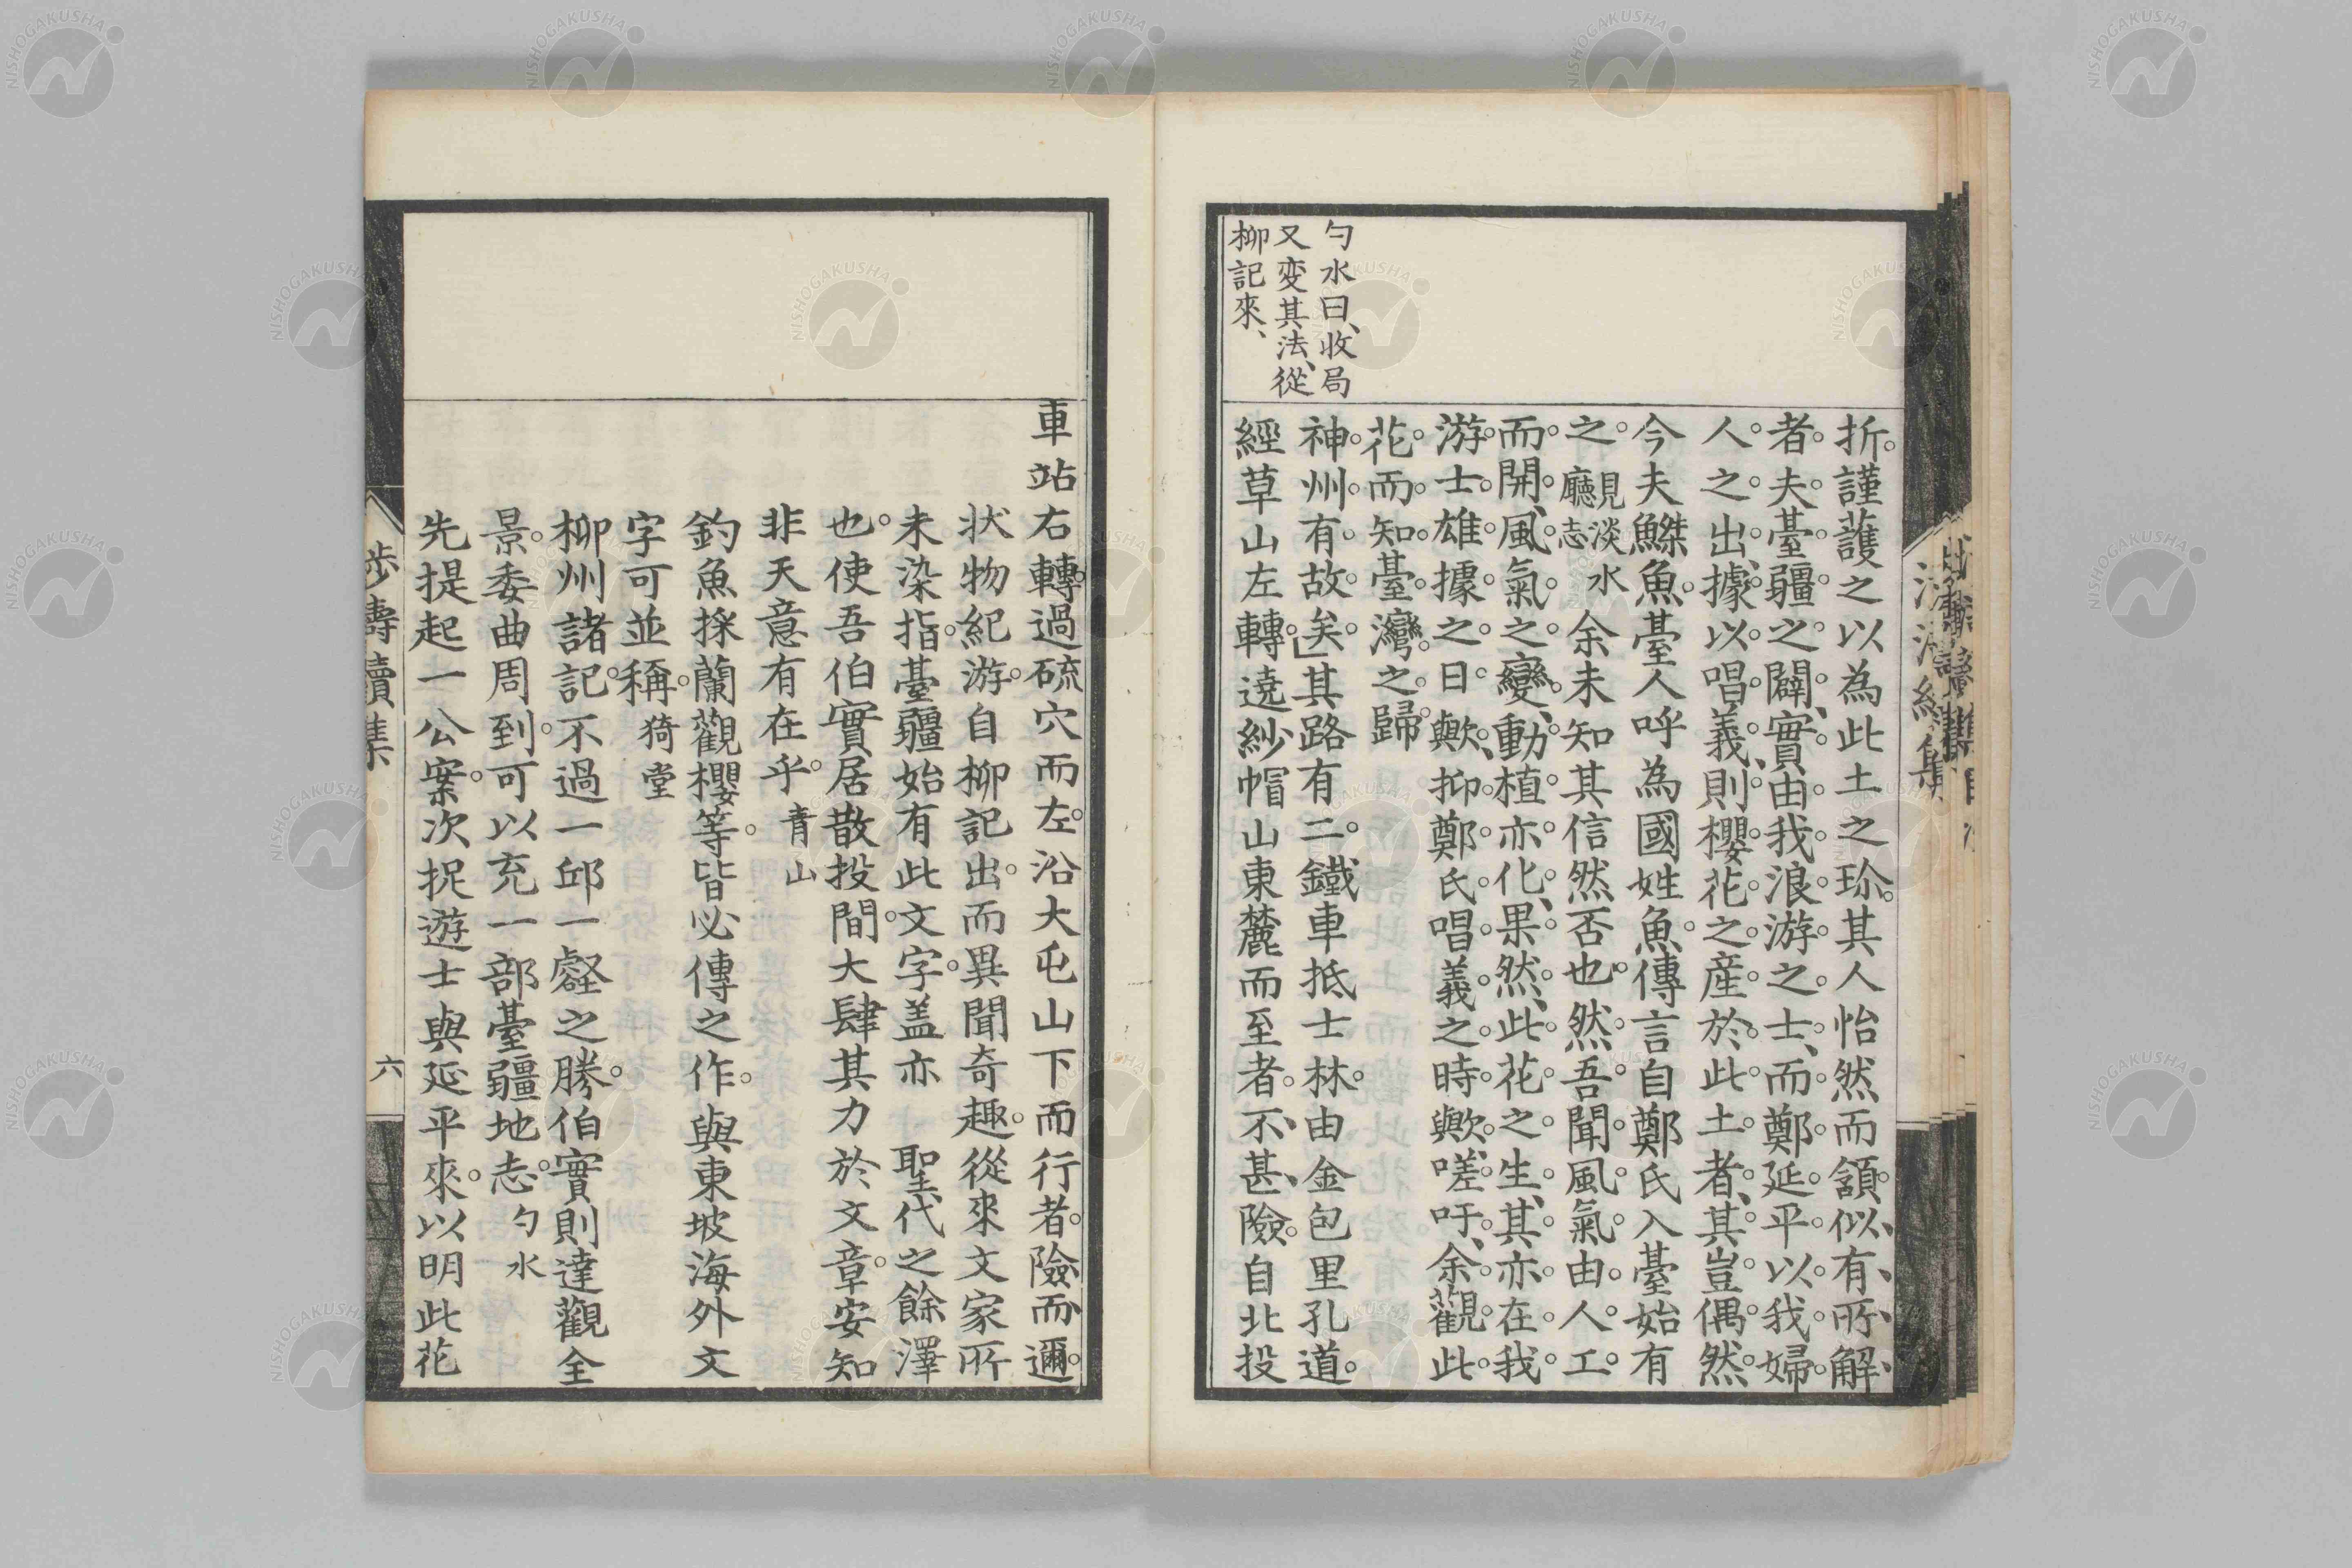 勺水曰、收局
又変其法、從
柳記來、
折。謹護之以為此土之珍。其人怡然而頷。似、有、所、解、
者。夫臺疆之闢、實由我浪游之士、而鄭延平以我婦
人之出、據以唱義、則櫻花之産於此土者、其豈偶然
今夫鱀魚。臺人呼為國姓魚。傳言自鄭氏入臺始有
之。見淡水廳志余未知其信然否也。然吾聞風氣由人工
而開、風氣之變、動植亦化、果然、此花之生、其亦在我
游士雄據之日歟、抑鄭氏唱義之時歟、嗟吁、余觀此
花而知臺灣之歸
神州有故矣。」其路有二。鐵車抵士林。由金包里孔道。
經草山左轉。遶紗帽山東麓而至者。不、甚、險。自北投
車站右轉。過硫穴而左。沿大屯山下而行者。險而邇。
狀物紀游。自柳記出。而異聞奇趣。從來文家所
未染指。臺疆始有此文字。盖亦 聖代之餘澤
也。使吾伯實居散投間。大肆其力於文章。安知
非天意有在乎。青山
釣魚採蘭觀櫻等。皆必傳之作。與東坡海外文
字可並稱。猗堂
柳州諸記。不過一邱一壑之勝。伯實則達觀全
景。委曲周到。可以充一部臺疆地志。勺水
先提起一公案。次捉遊士與延平來。以明此花
歩濤續集
六